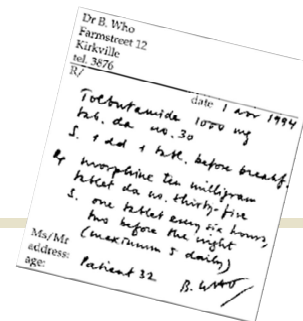 Dr B. Who
Farmstreet 12
Kirkville
tel. 3876
R/
date 1 apr 1994
Tolbutamide 1000 mg
tab. da no. 30
S. 1 dd 1 tabl. before breakf.
R/ morphine ten milligram
tablet da no. thirty-five
S. one tablet every six hours,
two before the night
(maximum 5 daily)
Ms/Mr Patient 32
address:
age:
B. WHO